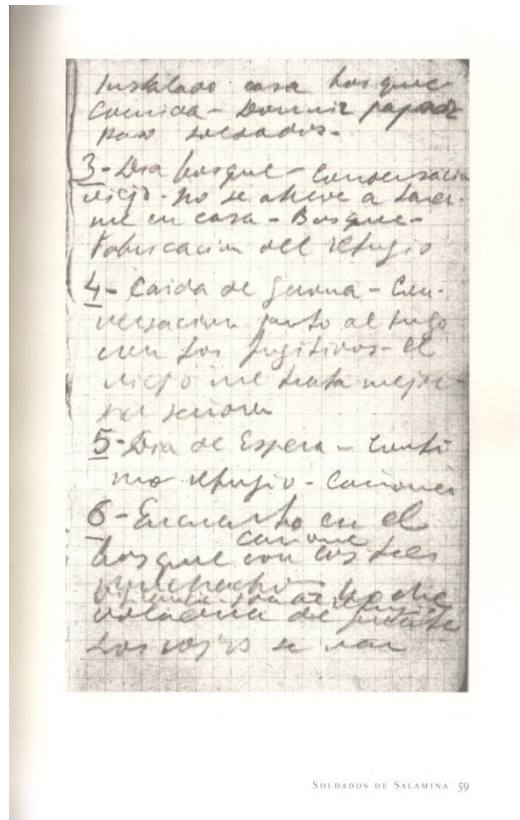 Instalado casa bosque
Comida - Dormir pajar
Paso soldados -
3 - Dia bosque - Conversación
viejo - no se atreve a tener-
me en casa - Bosque -
Fabricacion del refugio
4 - Caida de Gerona - Con-
versacion junto al fuego
con los fugitivos - el
viejo me trata mejor
su señora
5 - Dia de Espera - Conti
nuo refugio - Cañoneo
6 - Encuentro en el
bosque con los tres
muchachos - noche
voladura de puente
Los rojos se van
SOLDADOS DE SALAMINA 59